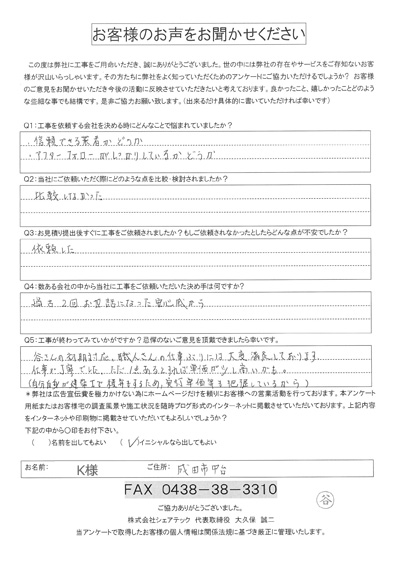 お客様のお声をお聞かせください
この度は弊社に工事をご用命いただき、誠にありがとうございました。世の中には弊社の存在やサービスをご存知ないお客様
が沢山いらっしゃいます。その方たちに弊社をよく知っていただくためのアンケートにご協力いただけるでしょうか? お客様
のご意見をお聞かせいただき今後の活動に反映させていただきたいと考えております。良かったこと、嬉しかったことどのよう
な些細な事でも結構です。是非ご協力お願い致します。(出来るだけ具体的に書いていただければ幸いです)
Q1:工事を依頼する会社を決める時にどんなことで悩まれていましたか?
・信頼できる業者かどうか
・アフターフォローがしっかりしているかどうか
Q2:当社にご依頼いただく際にどのような点を比較・検討されましたか?
比較しなかった
Q3:お見積り提出後すぐに工事をご依頼されましたか?もしご依頼されなかったとしたらどんな点が不安でしたか?
依頼した
Q4:数ある会社の中から当社に工事をご依頼いただいた決め手は何ですか?
過去2回お世話になった安心感から
Q5:工事が終わってみていかがですか?忌憚のないご意見を頂戴できましたら幸いです。
谷さんの対応、職人さんの仕事ぶりには大変満足しております。
仕事が丁寧でした。ただ1点あるとすれば単価が少し高いかも。
(自分自身が建築工事
単価等も把握しているから)
*弊社は広告宣伝費を極力かけない為にホームページだけを頼りにお客様への営業活動を行っております。本アンケート
用紙またはお客様宅の調査風景や施工状況を随時ブログ形式のインターネットに掲載させていただいております。上記内容
をインターネットや印刷物に掲載させていただいてもよろしいでしょうか?
下記の中から〇印をお付下さい。
(  )名前を出してもよい (✓)イニシャルなら出してもよい
お名前: K様 ご住所: 成田市中台
FAX 0438-38-3310
谷
ご協力ありがとうございました。
株式会社シェアテック 代表取締役 大久保 誠二
当アンケートで取得したお客様の個人情報は関係法規に基づき厳正に管理いたします。